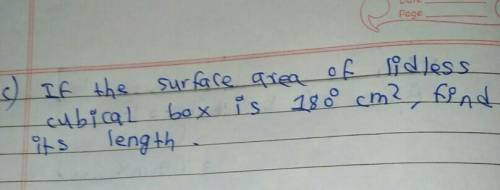 Page
c) If the surface area of lidless
cubical box is 180 cm², find
its length.